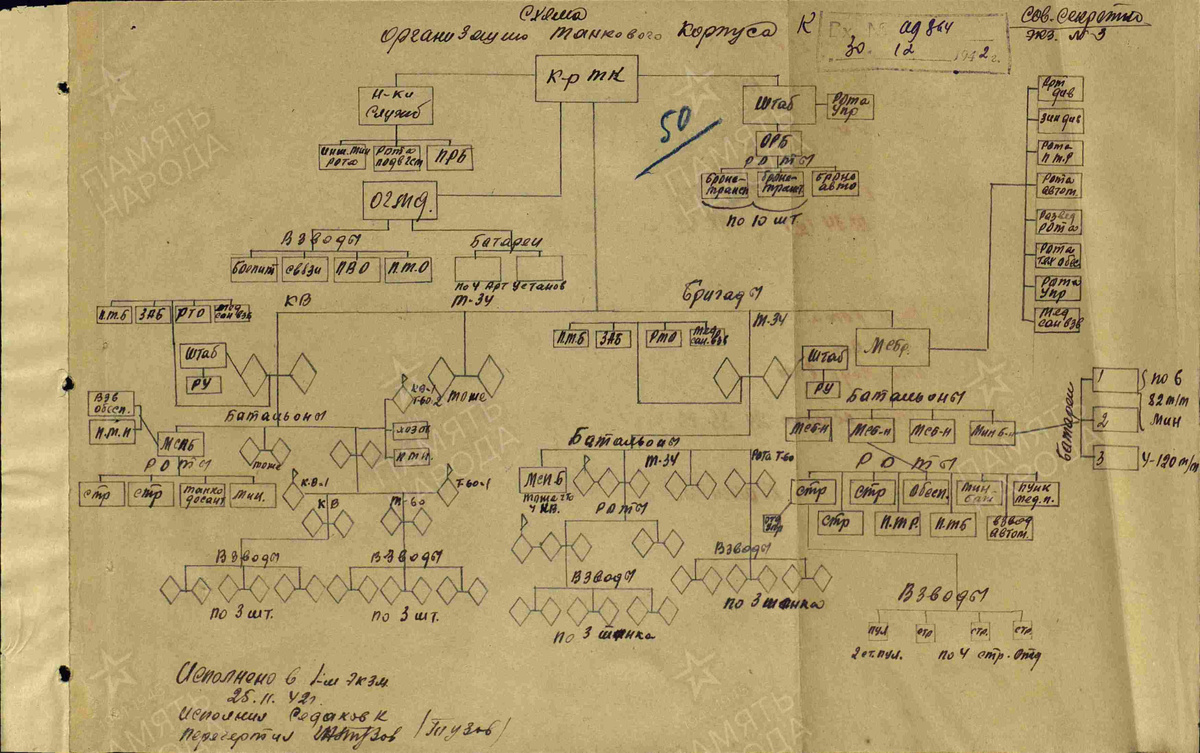 Схема
организации танкового корпуса К
Сов. секретно
Экз. № 3
Вх. №
30. 12 1942 г.
К-р ТК
Н-ки
служб
Инж. мин
рота
Рота
подвест
ПРБ
50
Штаб
Рота
Упр
ОРБ
Роты
Броне-
трансп
Броне-
трансп
Броне
авто
по 10 шт.
ОГМД.
Взводы
Боепит
связи
ПВО
П.Т.О
Батареи
по 4 арт установ
Арт
див
Зен див
Рота
П.Т.Р
Рота
автом.
Развед
рота
Рота
тех обес.
Рота
Упр
Мед
сан взв
КВ
Т-34
Бригады
Т-34
П.Т.Б
ЗАБ
РТО
Мед
сан взв
Штаб
РУ
П.Т.Б
ЗАБ
РТО
Мед
сан. взв
Штаб
РУ
Мсбр.
Взв
обесп.
П.М.П
Мспб
Батальоны
тоже
КВ-1
Т-60-2
хозот
тоже
Роты
стр
стр
танко
десант
Мин.
КВ-1
КВ
Т-60
Т-60-1
Взводы
Взводы
по 3 шт.
по 3 шт.
Батальоны
Мспб
Т-34
Рота Т-60
КВ.
Роты
Взводы
по 3 танка
Взводы
по 3 танка
Батальоны
Мсб-н
Мсб-н
Мсб-н
Мин б-н
Батареи
1
2
3
по 6
82 m/m
мин
4-120 m/m
Роты
стр
стр
Обесп.
Мин.
бат
Пунк
мед. п.
стр
П.Т.Р.
П.Т.Б
Взвод
автом.
Взводы
пул
стр
стр.
стр.
2 ст. пул.
по 4 стр. отд
Исполнено в 1-м экзм
25. 11. 42 г.
Исполнил Седаков К
Перечертил (Тузов)
ПАМЯТЬ
НАРОДА